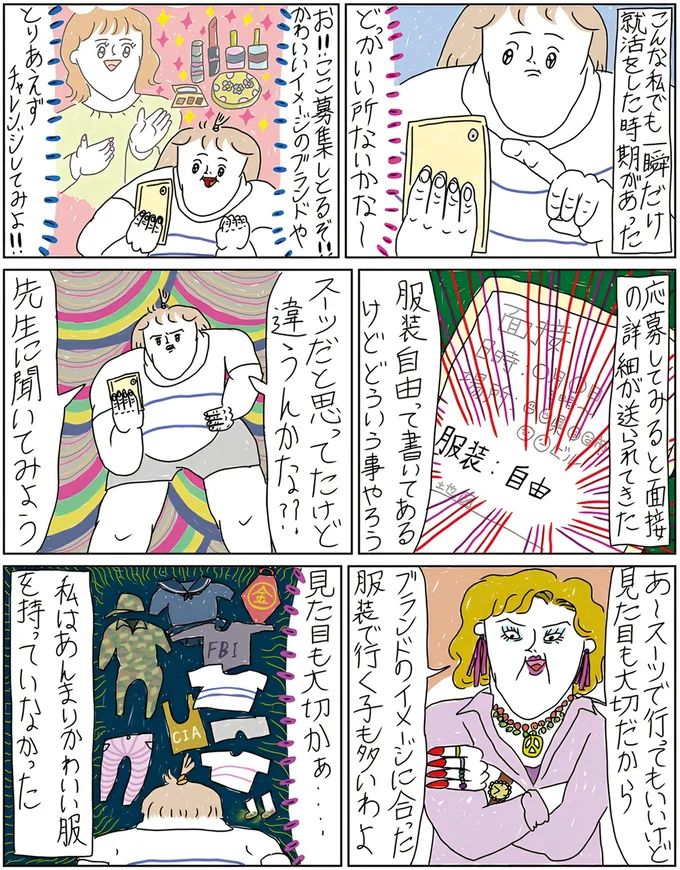 こんな私でも一瞬だけ
就活をした時期があった
どがいい所ないかな〜
お!!ここ募集しとるぞ!!
かわいいイメージのブランドや
とりあえず
チャレンジしてみよ!!
応募してみると面接
の詳細が送られてきた
面接
日時:〇月〇日
場所:
服装:自由
服装自由って書いてある
けどどういう事やろう
スーツだと思ってたけど
違うんかな??
先生に聞いてみよう
あ〜スーツで行ってもいいけど
見た目も大切だから
ブランドのイメージに合った
服装で行く子も多いわよ
見た目も大切かぁ...
金
FBI
CIA
私はあんまりかわいい服
を持っていなかった